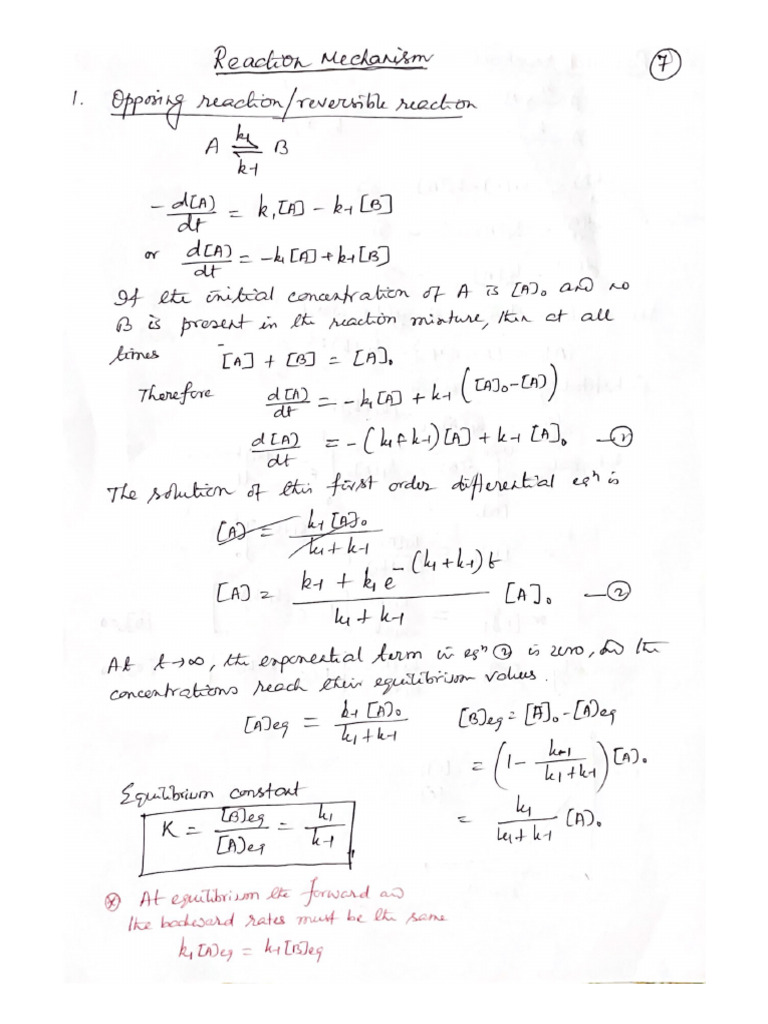 Reaction Mechanism
7
1. Opposing reaction/reversible reaction
A ⇌ B
k1
k-1
- d[A]/dt = k1[A] - k-1[B]
or d[A]/dt = -k1[A] + k-1[B]
If the initial concentration of A is [A]0 and no
B is present in the reaction mixture, then at all
times [A] + [B] = [A]0
Therefore d[A]/dt = -k1[A] + k-1([A]0-[A])
d[A]/dt = -(k1+k-1)[A] + k-1[A]0 —①
The solution of this first order differential eqn is
[A] = k-1[A]0/k1+k-1
[A] = k-1 + k1e^-(k1+k-1)t / k1+k-1 [A]0 —②
At t→∞, the exponential term in eqn ② is zero, the
concentrations reach their equilibrium values.
[A]eq = k-1[A]0/k1+k-1
[B]eq = [A]0-[A]eq
= (1 - k-1/k1+k-1)[A]0
= k1/k1+k-1 [A]0
Equilibrium constant
K = [B]eq/[A]eq = k1/k-1
⊗ At equilibrium the forward and
the backward rates must be the same
k1[A]eq = k-1[B]eq